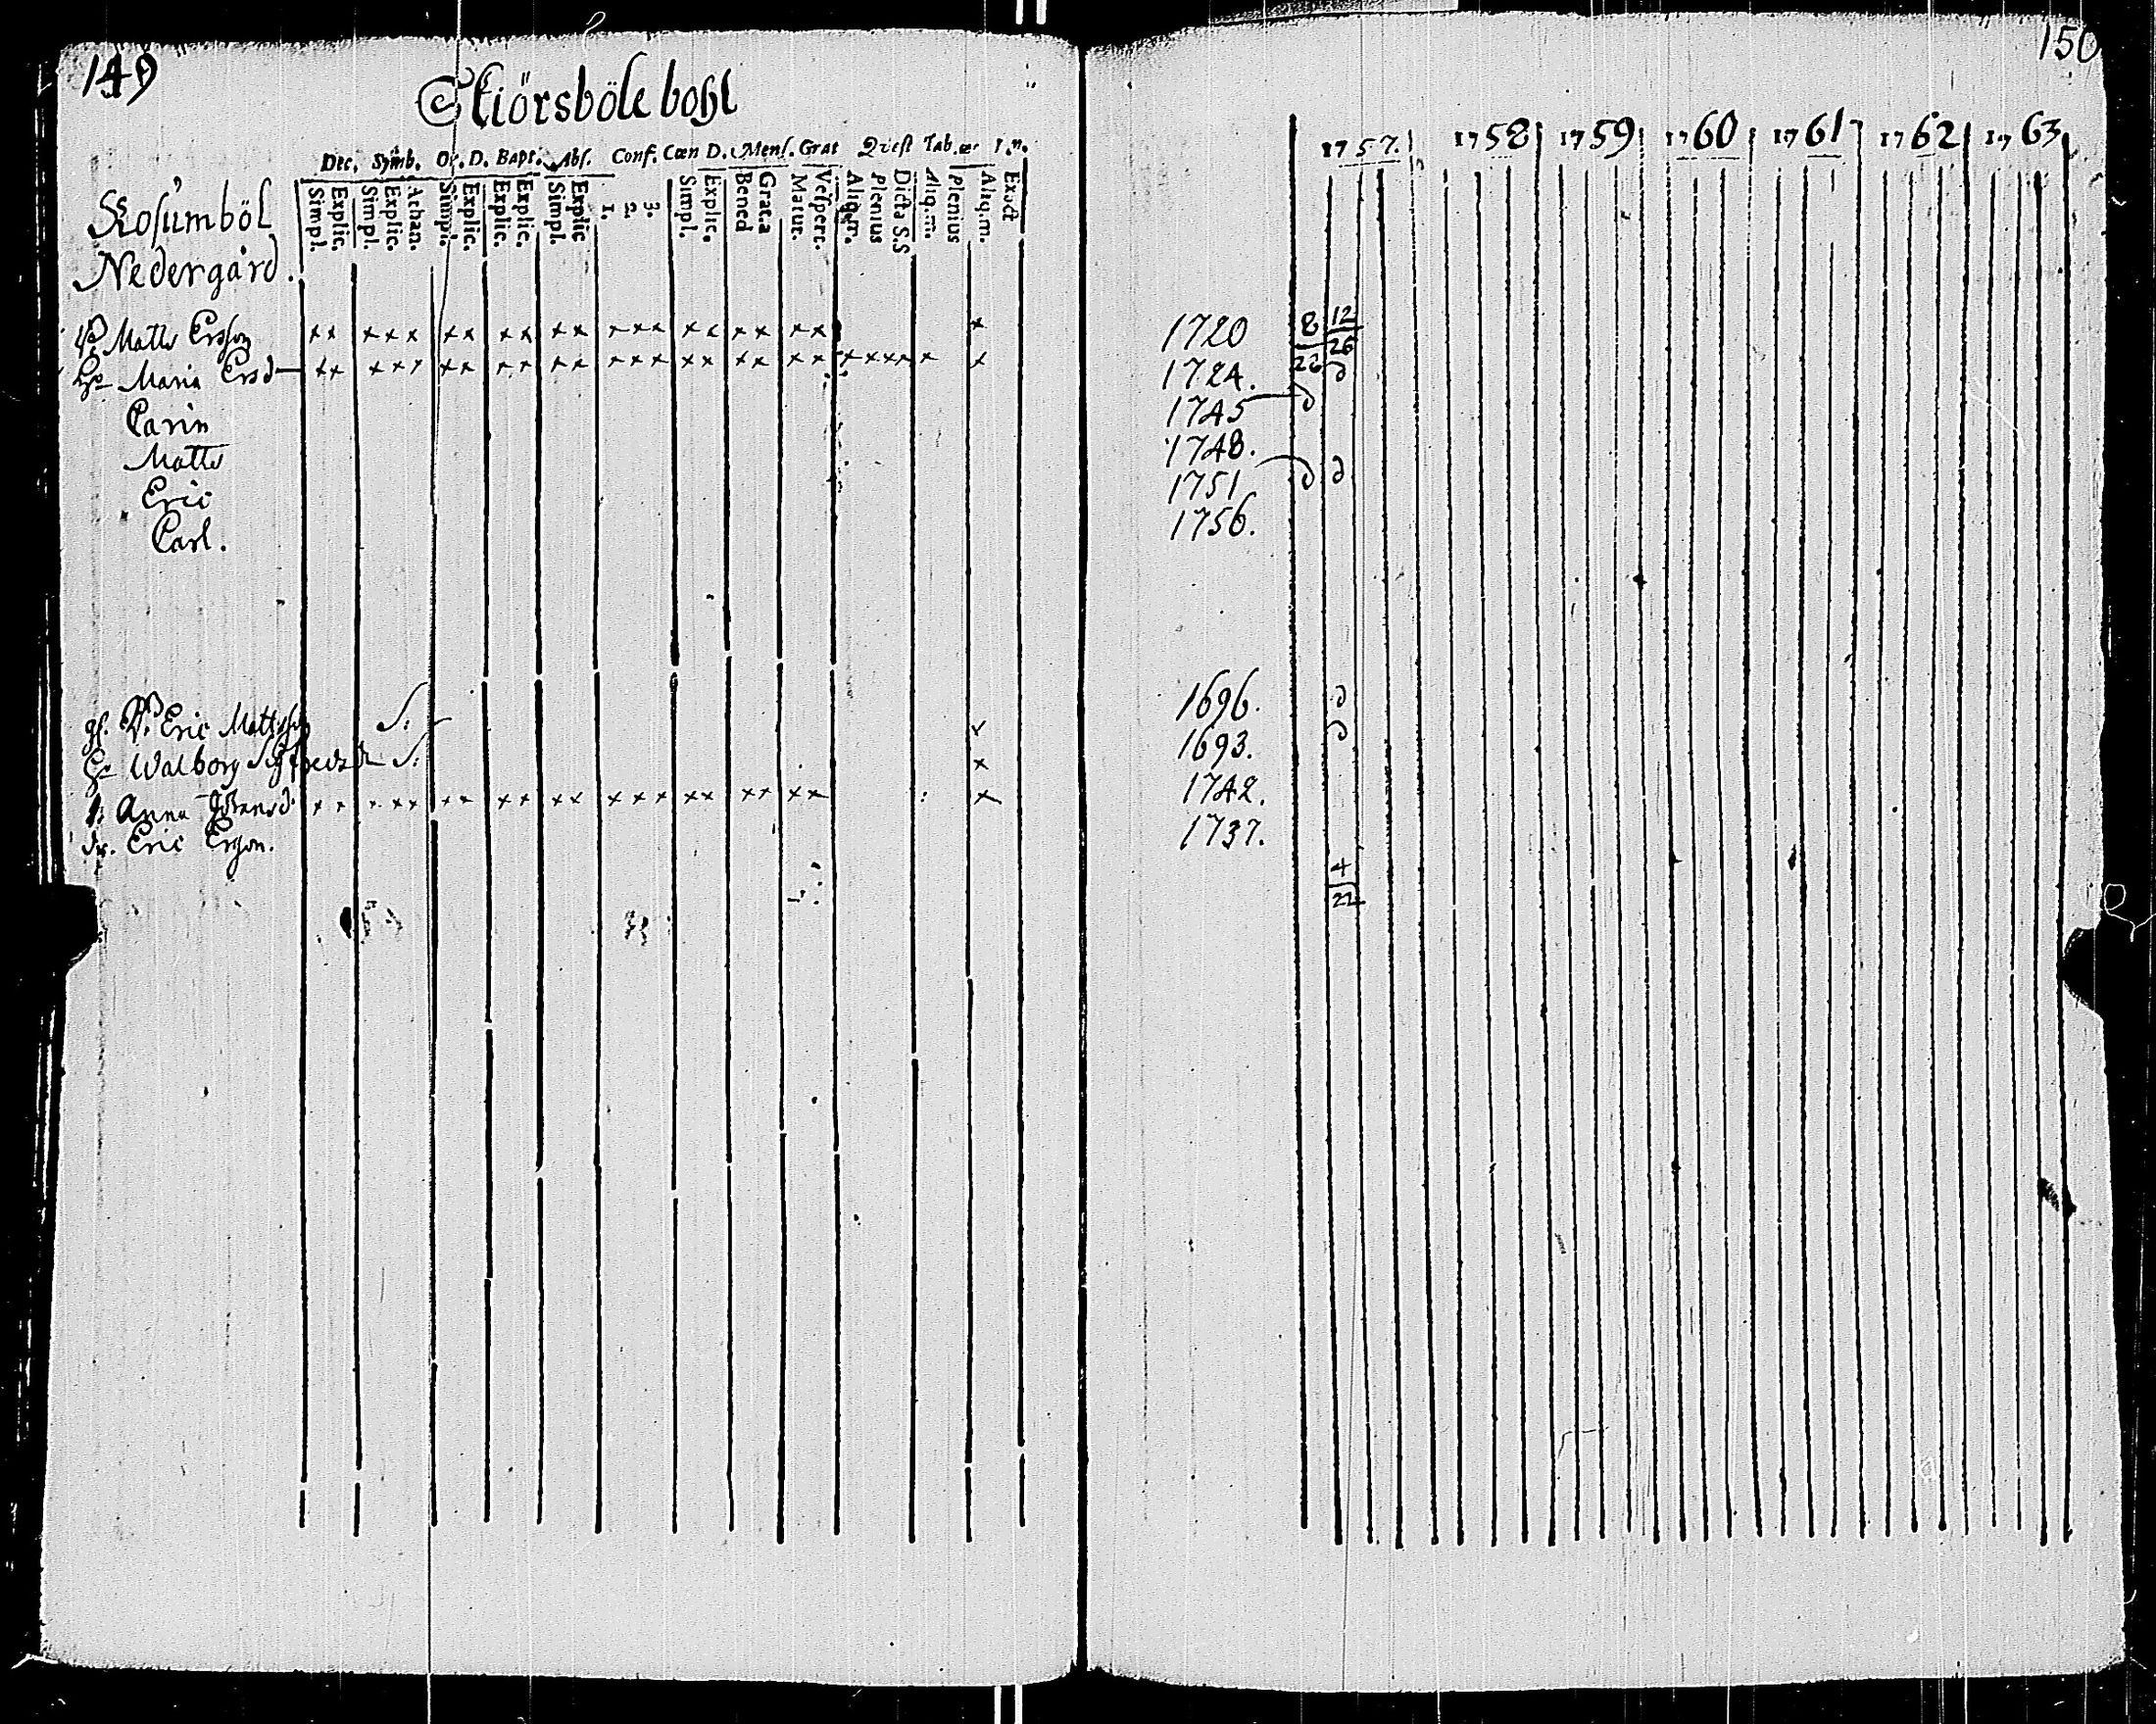 149
Skiörsböle bohl
Dec. Symb. Or. D. Bapt. Abs. Conf. Cœn D. Mens. Grat Quæst Tab. œc
Simpl. Explic. Simpl. Explic. Athan. Simpl. Explic. Explic. Explic. Simpl. Explic 1. 2. 3. Simpl. Explic. Bened Grat.a Matut. Vespert. Aliq.m. Plenius Dicta S.S Aliq.m. Plenius Aliq.m. Exact
Rosumböl
Nedergård.
Matts Ersson x x x x x x x x x x x x x x x x x x x x x
Maria Ersd x x x x x x x x x x x x x x x x x x x x x x x x x x
Carin
Matts
Eric
Carl.
Eric Mattsson S: x
Walborg Sigfredsdr S: x
Anna x x x x x x x x x x x x x x x x x x x x x
dr. Eric Ersson.
150
1757. 1758 1759 1760 1761 1762 1763
1720 8 12
26
1724. 26
1745
1748.
1751
1756.
1696.
1693.
1742.
1737.
4
22